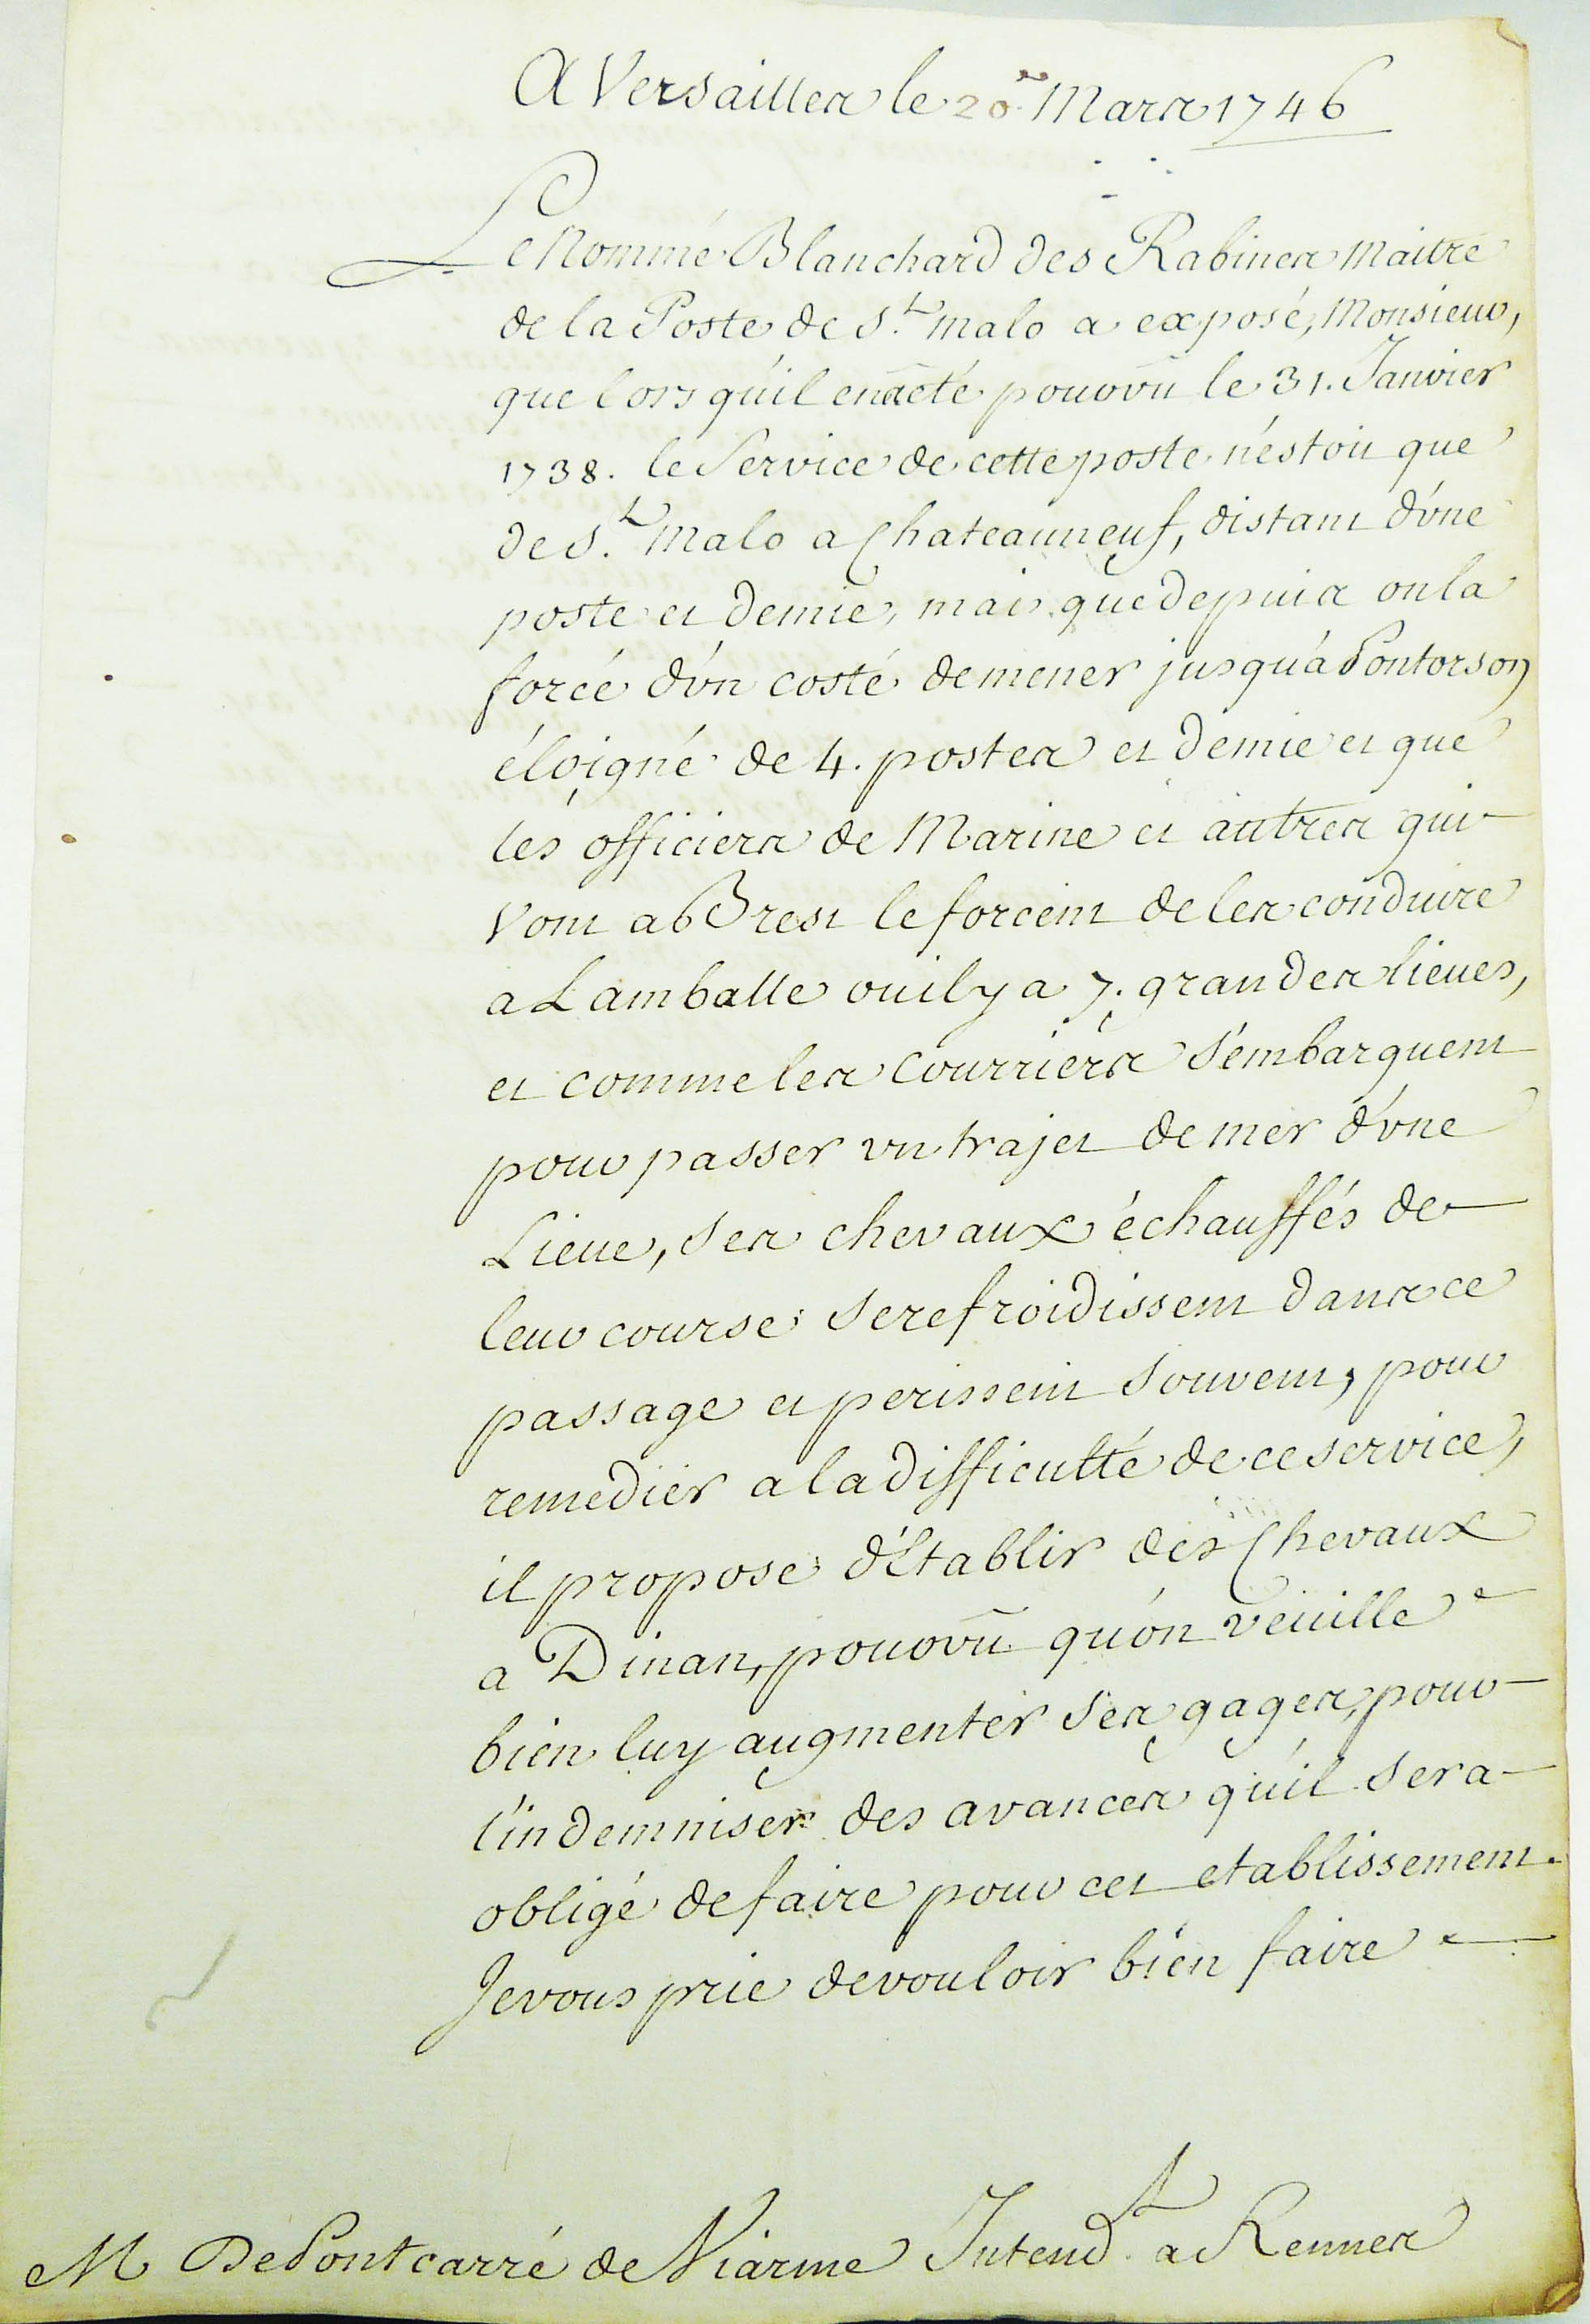 A Versailles le 20 Mars 1746
Le Nommé Blanchard des Rabines Maitre
de la Poste de St. malo a exposé, Monsieur,
que lorsqu'il en a eté pourvû le 31. Janvier
1738. le Service de cette poste n'estoit que
de St. Malo a Chateauneuf, distant d'vne
poste et demie, mais que depuis on la
forcé d'vn costé de mener jusqu'a Pontorson
éloigné de 4. postes et demie et que
les officiers de Marine et autres qui
Vont a Brest le forcent de les conduire
a Lamballe ou il y a 7. grandes lieues,
et comme les Courriers s'embarquent
pour passer vn trajet de mer d'vne
Lieue, ses chevaux échauffés de
leur course se refroidissent dans ce
passage et perissent souvent, pour
remedier a la difficulté de ce service,
il propose d'Etablir des Chevaux
a Dinan, pourvû qu'on veuille
bien luy augmenter ses gages, pour
l'indemniser des avances qu'il sera
obligé de faire pour cet etablissement.
Je vous prie de vouloir bien faire
M De Pontcarré de Viarme Intendt. a Rennes